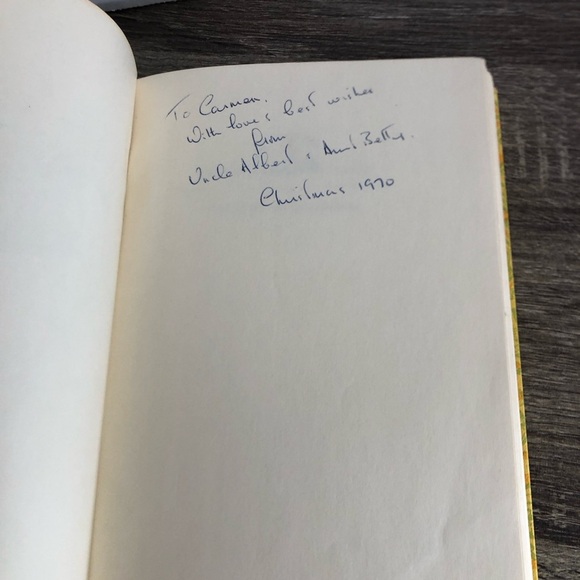 To Carmen.
With love & best wishes
from
Uncle Albert & Aunt Betty.
Christmas 1970